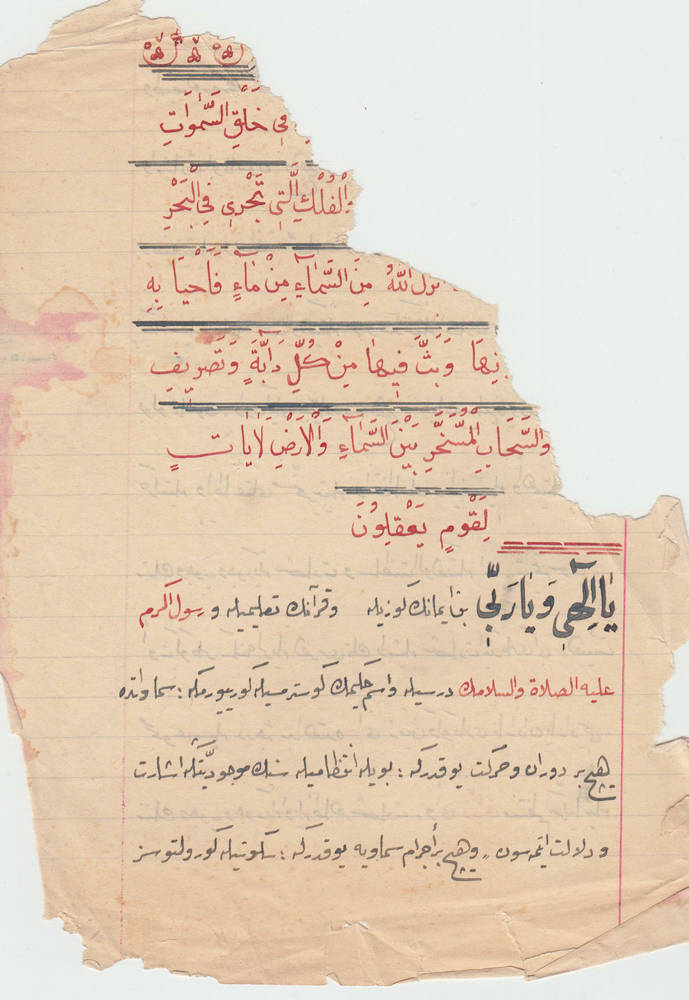 فِي خَلْقِ السَّمٰوَاتِ
وَالْفُلْكِ الَّتِي تَجْرِي فِي الْبَحْرِ
نْزَلَ اللّٰهُ مِنَ السَّمَاۤءِ مِنْ مَاۤءٍ فَاَحْيَا بِهِ
تِهَا وَبَثَّ فِيهَا مِنْ كُلِّ دَاۤبَّةٍ وَتَصْرِيفِ
وَالسَّحَابِ الْمُسَخَّرِ بَيْنَ السَّمَاۤءِ وَالْاَرْضِ لَاٰيَاتٍ
لِقَوْمٍ يَعْقِلُونَ
يَا اِلٰهِي وَيَا رَبِّي بن ايمانك كوزيله و قرآنك تعليميله و رسول اكرم
عليه الصلاة والسلامك درسيله واسم حكيمك كوسترمسيله كورييورمكه: سماواتده
هيچ بر دوران و حركت يوقدركه: بويله انتظاميله سنك موجوديتكه اشارت
و دلالت ايتمه سون. وهيچ بر أجرام سماويه يوقدركه: سكوتيله كورولتوسز